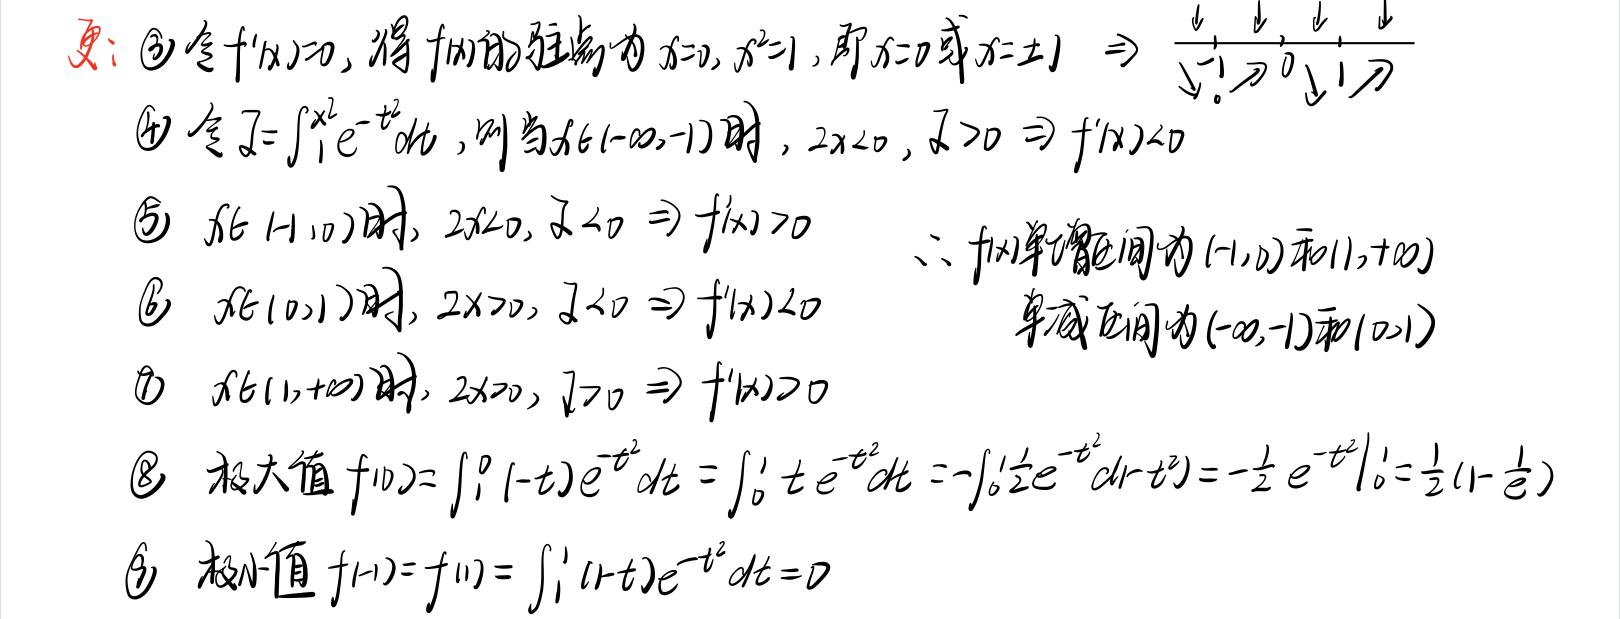 更: ③ 令f'(x)=0, 得f(x)的驻点为 x=0, x²=1, 即x=0或x=±1 ⇒ ↓ ↓ ↓ ↓
↘ -1 ↗ 0 ↘ 1 ↗
④ 令I=∫₁^{x²} e^{-t²}dt, 则当x∈(-∞,-1)时, 2x<0, I>0 ⇒ f'(x)<0
⑤ x∈(-1,0)时, 2x<0, I<0 ⇒ f'(x)>0
∴ f(x)单增区间为(-1,0)和(1,+∞)
⑥ x∈(0,1)时, 2x>0, I<0 ⇒ f'(x)<0
单减区间为(-∞,-1)和(0,1)
⑦ x∈(1,+∞)时, 2x>0, I>0 ⇒ f'(x)>0
⑧ 极大值 f(0)=∫₁^0 (-t)e^{-t²}dt = ∫₀^1 t e^{-t²}dt = -∫₀^1 ½e^{-t²}d(-t²) = -½ e^{-t²}|₀^1 = ½(1-1/e)
⑨ 极小值 f(-1)=f(1)=∫₁^1 (1-t)e^{-t²}dt=0